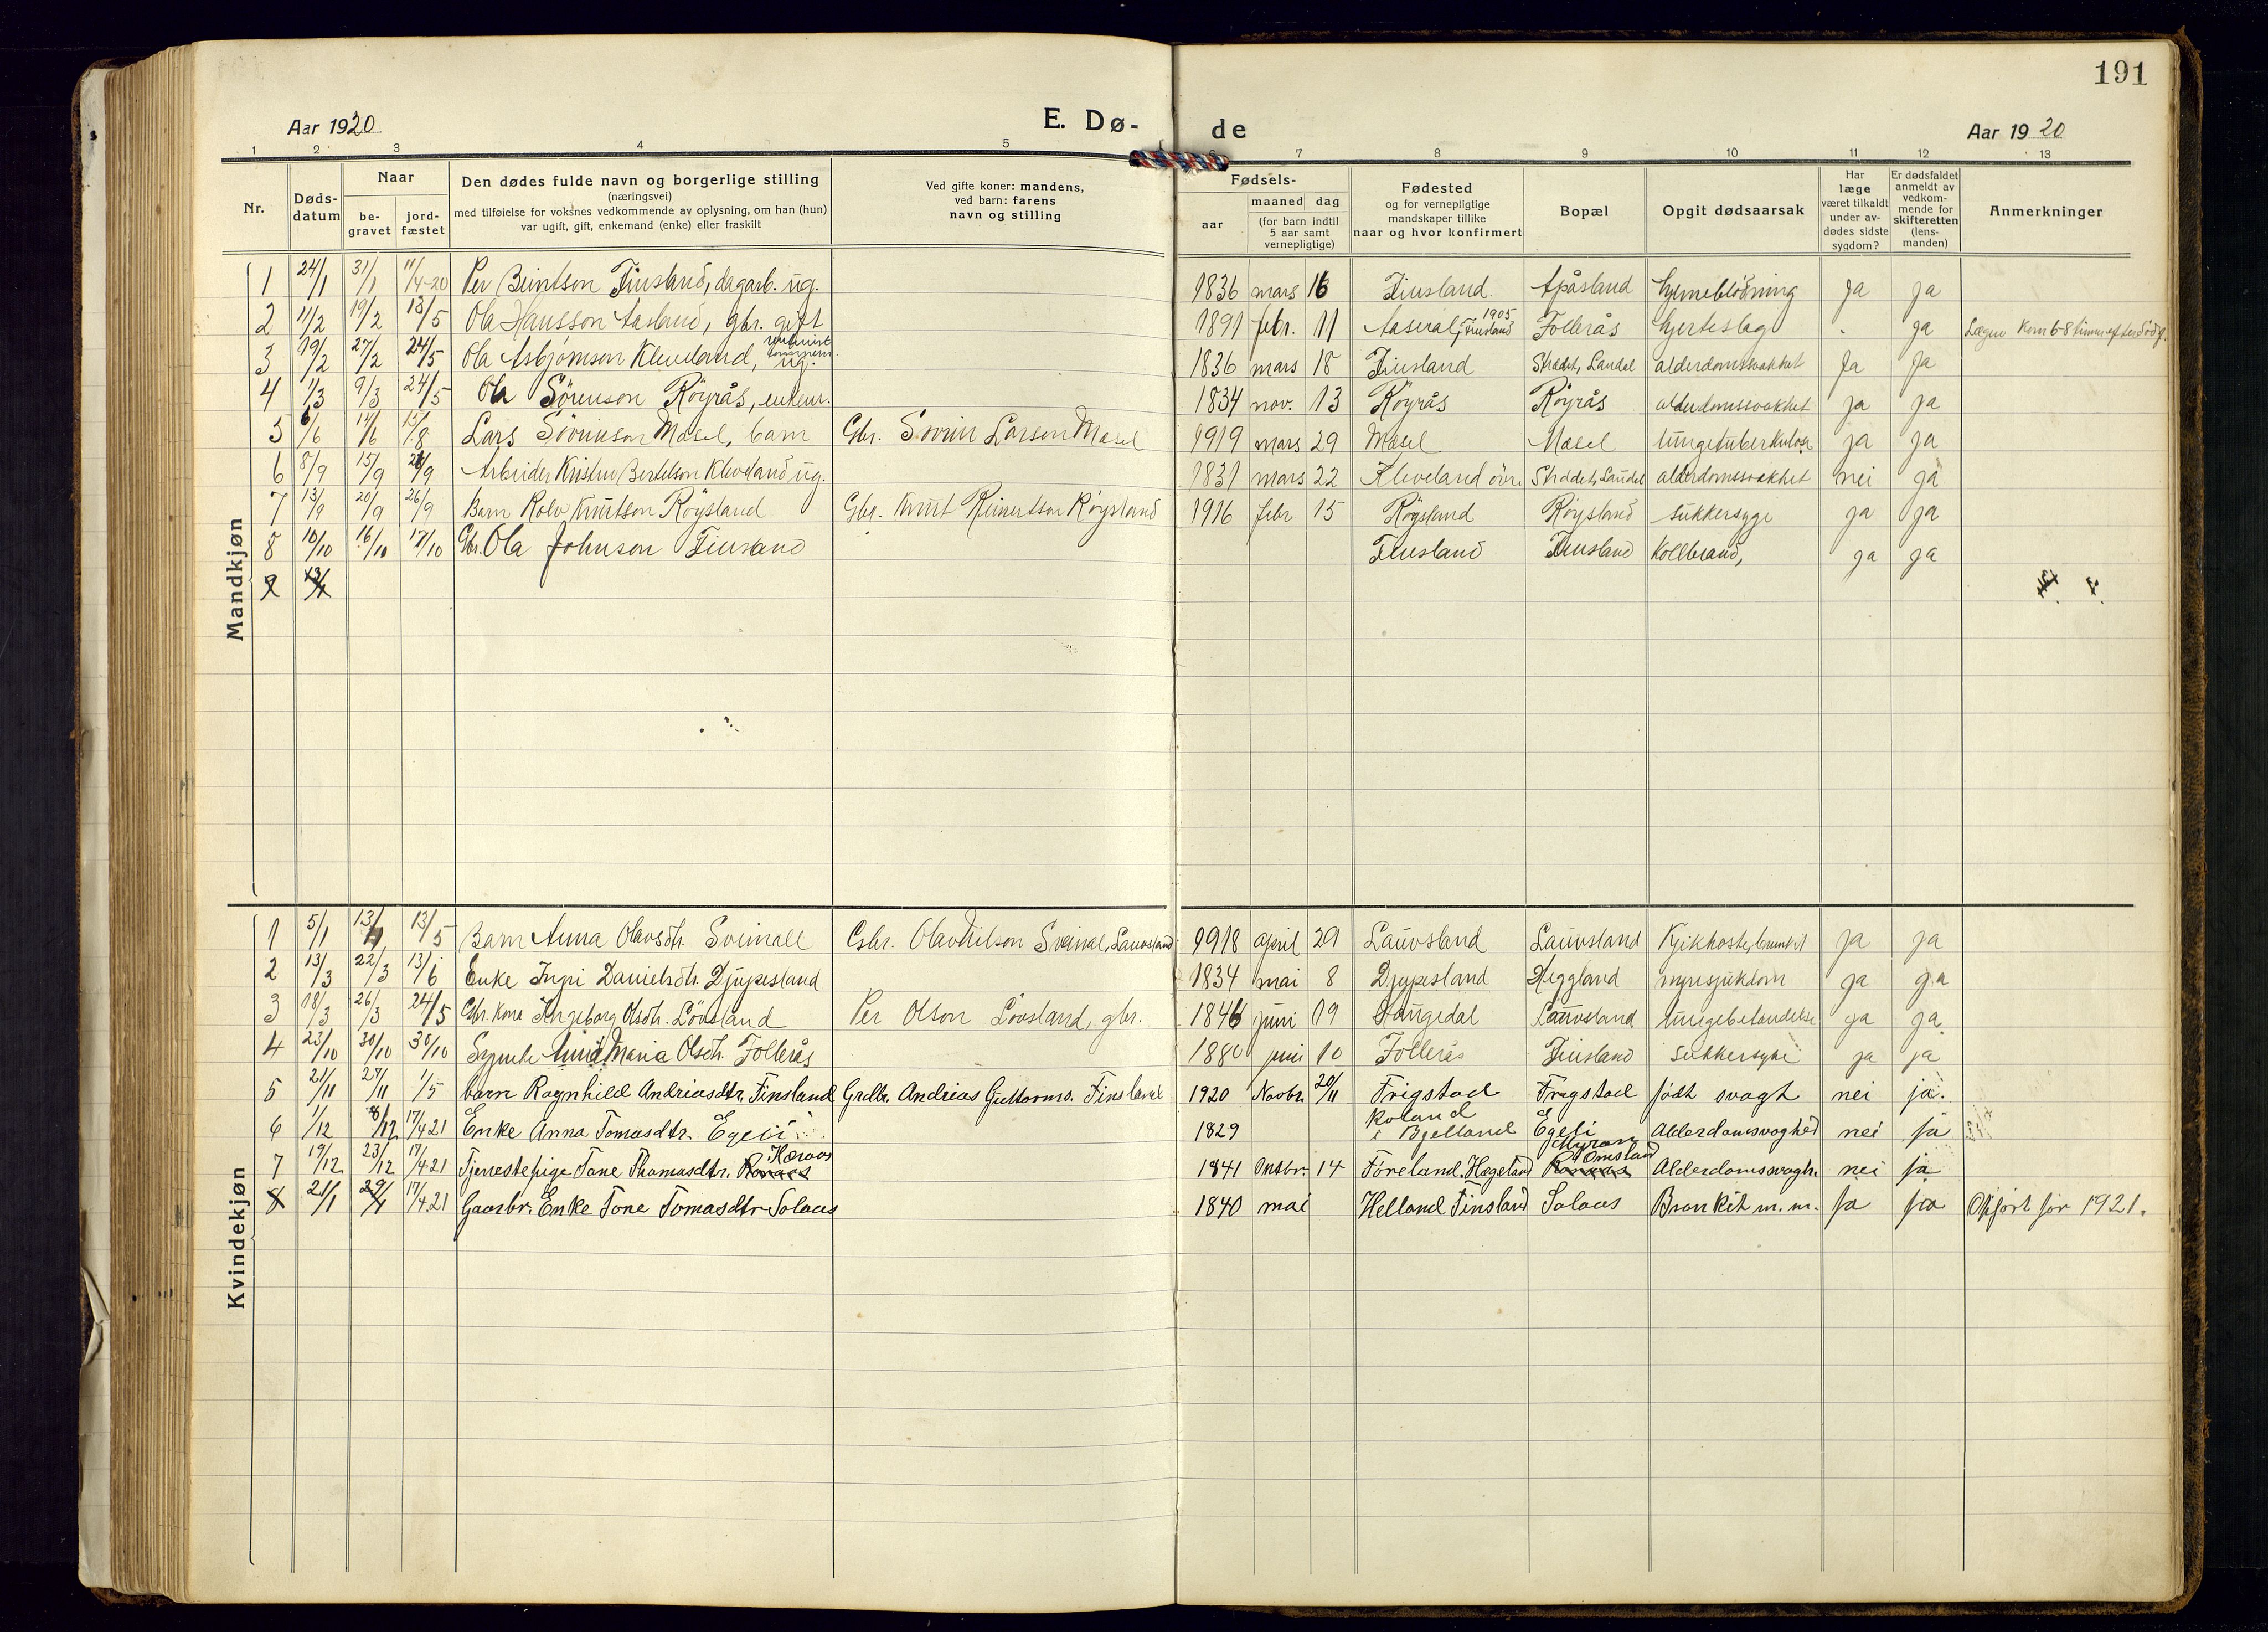 191
Aar 1920
E. Dø-
de
Aar 1920
1 2 3 4 5 6 7 8 9 10 11 12 13
Nr.
Døds-
datum
Naar
be-
gravet
jord-
fæstet
Den dødes fulde navn og borgerlige stilling
(næringsvei)
med tilføielse for voksnes vedkommende av oplysning, om han (hun)
var ugift, gift, enkemand (enke) eller fraskilt
Ved gifte koner: mandens,
ved barn: farens
navn og stilling
Fødsels-
aar
maaned dag
(for barn indtil
5 aar samt
vernepligtige)
Fødested
og for vernepligtige
mandskaper tillike
naar og hvor konfirmert
Bopæl
Opgit dødsaarsak
Har
læge
været tilkaldt
under av-
dødes sidste
sygdom?
Er dødsfaldet
anmeldt av
vedkom-
mende for
skifteretten
(lens-
manden)
Anmerkninger
Mandkjøn
1 24/1 31/1 11/4-20 Per Berntson Finsland, dagarb. ug. 1836 mars 16 Finsland. Apåsland hjerneblödning ja ja
2 11/2 19/2 13/5 Ola Hansson Aasland, gbr. gift 1891 febr. 11 Aaseral, Finsland 1905 Follerås hjerteslag ja Lægen kom 6-8 timer efter
3 19/2 27/2 24/5 Ola Asbjörnson Kleveland, ug. 1836 mars 18 Finsland Stradet, Laudal alderdomssvakhet Ja Ja
4 1/3 9/3 24/5 Ola Sörenson Röyrås, enkem. 1834 nov. 13 Röyrås Röyrås alderdomssvakhet ja ja
5 6/6 14/6 15/8 Lars Sörenson Mæsel, barn Gbr. Sörin Larson Mæsel 1919 mars 29 Mæsel Mæsel lungetuberkulose ja ja
6 8/9 15/9 26/9 Arbeider Kristen Bertelson Kleveland ug. 1831 mars 22 Kleveland övre Stradet, Laudal alderdomssvakhet nei ja
7 13/9 20/9 26/9 Barn Rolv Knutson Röysland Gbr. Knut Reinertson Röysland 1916 febr 15 Röysland Röysland sukkersyge ja ja
8 10/10 16/10 17/10 Gbr. Ola Johnson Finsland Finsland Finsland Kollbrand, ja ja
Kvindekjøn
1 5/1 13/1 13/5 Barn Anna Olavsdtr. Sveinall Gbr. Olav Nilson Sveinal, Lauvsland 1918 april 29 Lauvsland Lauvsland Kjikhoste, bronkit ja ja
2 13/3 22/3 13/6 Enke Ingri Danielsdtr. Djupesland 1834 mai 8 Djupesland Heggland nyresjukdom ja ja
3 18/3 26/3 24/5 Gbr. kone Ingeborg Olsdtr. Lövsland Per Olson Lövsland, gbr. 1846 juni 19 Haugedal Lauvsland lungebetændelse ja ja.
4 23/10 30/10 30/10 Maria Olsdtr. Follerås 1880 juni 10 Follerås Finsland sukkersyke ja ja
5 21/11 27/11 1/5 barn Ragnhild Andriasdtr. Finsland Grdbr. Andrias Guttorms. Finsland 1920 Novbr. 20/11 Frigstad Frigstad födt svagt nei ja.
6 1/12 8/12 17/4 21 Enke Anna Tomasdtr. Egeli 1829 Roland i Bjelland Egeli Alderdomsvaghed nei ja
7 19/12 23/12 17/4 21 Tjenestepige Tone Thomasdtr. Hæraas 1841 Octbr. 14 Föreland. Hægeland Myran Omsland Alderdomsvagh. nei ja
8 21/1 29/1 17/4.21 Gaardbr. Enke Tone Tomasdtr Solaas 1840 mai Helland Finsland Solaas Bronkit m. m. ja ja Opfört for 1921.